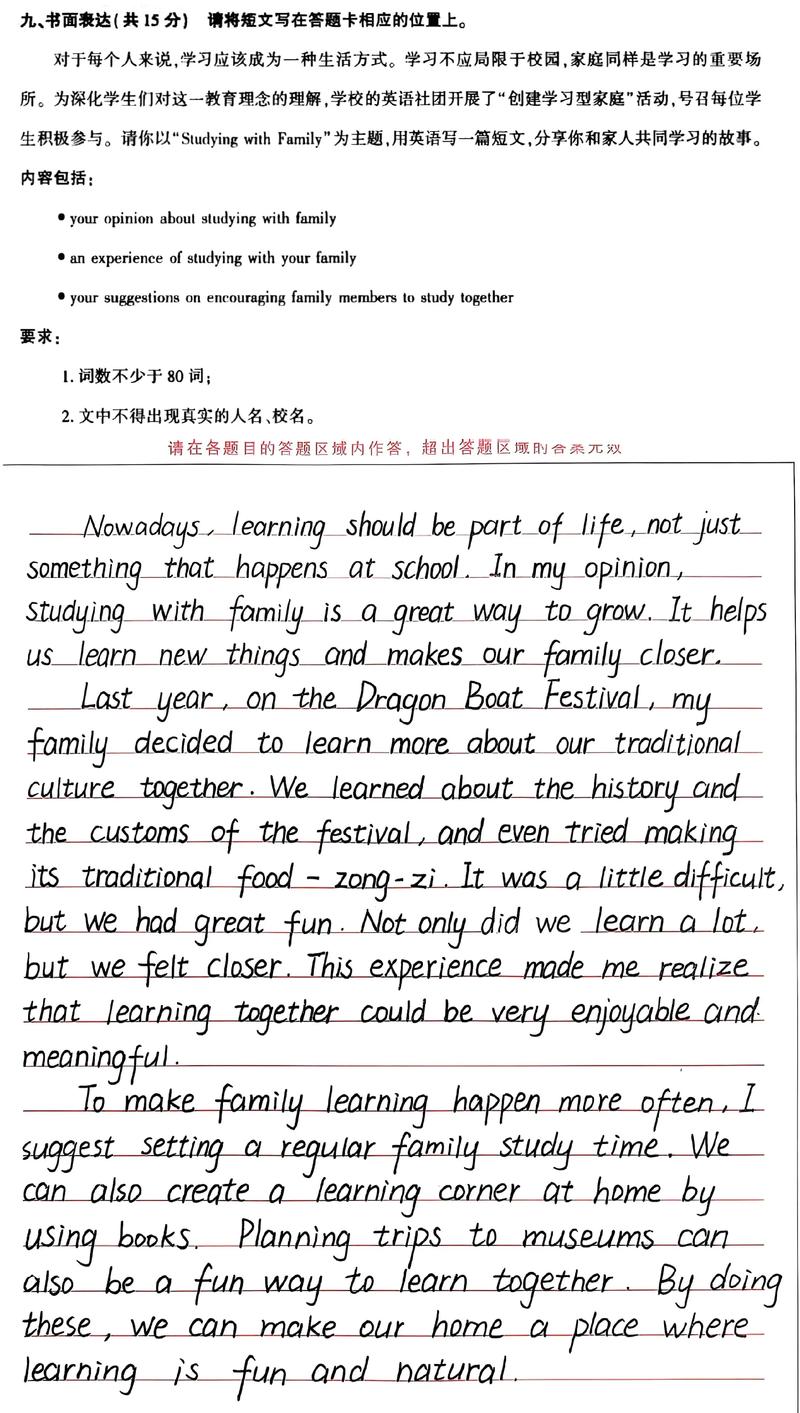 九、书面表达(共15分) 请将短文写在答题卡相应的位置上。
对于每个人来说,学习应该成为一种生活方式。学习不应局限于校园,家庭同样是学习的重要场
所。为深化学生们对这一教育理念的理解,学校的英语社团开展了“创建学习型家庭”活动,号召每位学
生积极参与。请你以“Studying with Family”为主题,用英语写一篇短文,分享你和家人共同学习的故事。
内容包括:
• your opinion about studying with family
• an experience of studying with your family
• your suggestions on encouraging family members to study together
要求:
1. 词数不少于80词;
2. 文中不得出现真实的人名、校名。
请在各题目的答题区域内作答,超出答题区域的答案无效
Nowadays, learning should be part of life, not just
something that happens at school. In my opinion,
studying with family is a great way to grow. It helps
us learn new things and makes our family closer.
Last year, on the Dragon Boat Festival, my
family decided to learn more about our traditional
culture together. We learned about the history and
the customs of the festival, and even tried making
its traditional food - zong-zi. It was a little difficult,
but we had great fun. Not only did we learn a lot,
but we felt closer. This experience made me realize
that learning together could be very enjoyable and
meaningful.
To make family learning happen more often, I
suggest setting a regular family study time. We
can also create a learning corner at home by
using books. Planning trips to museums can
also be a fun way to learn together. By doing
these, we can make our home a place where
learning is fun and natural.